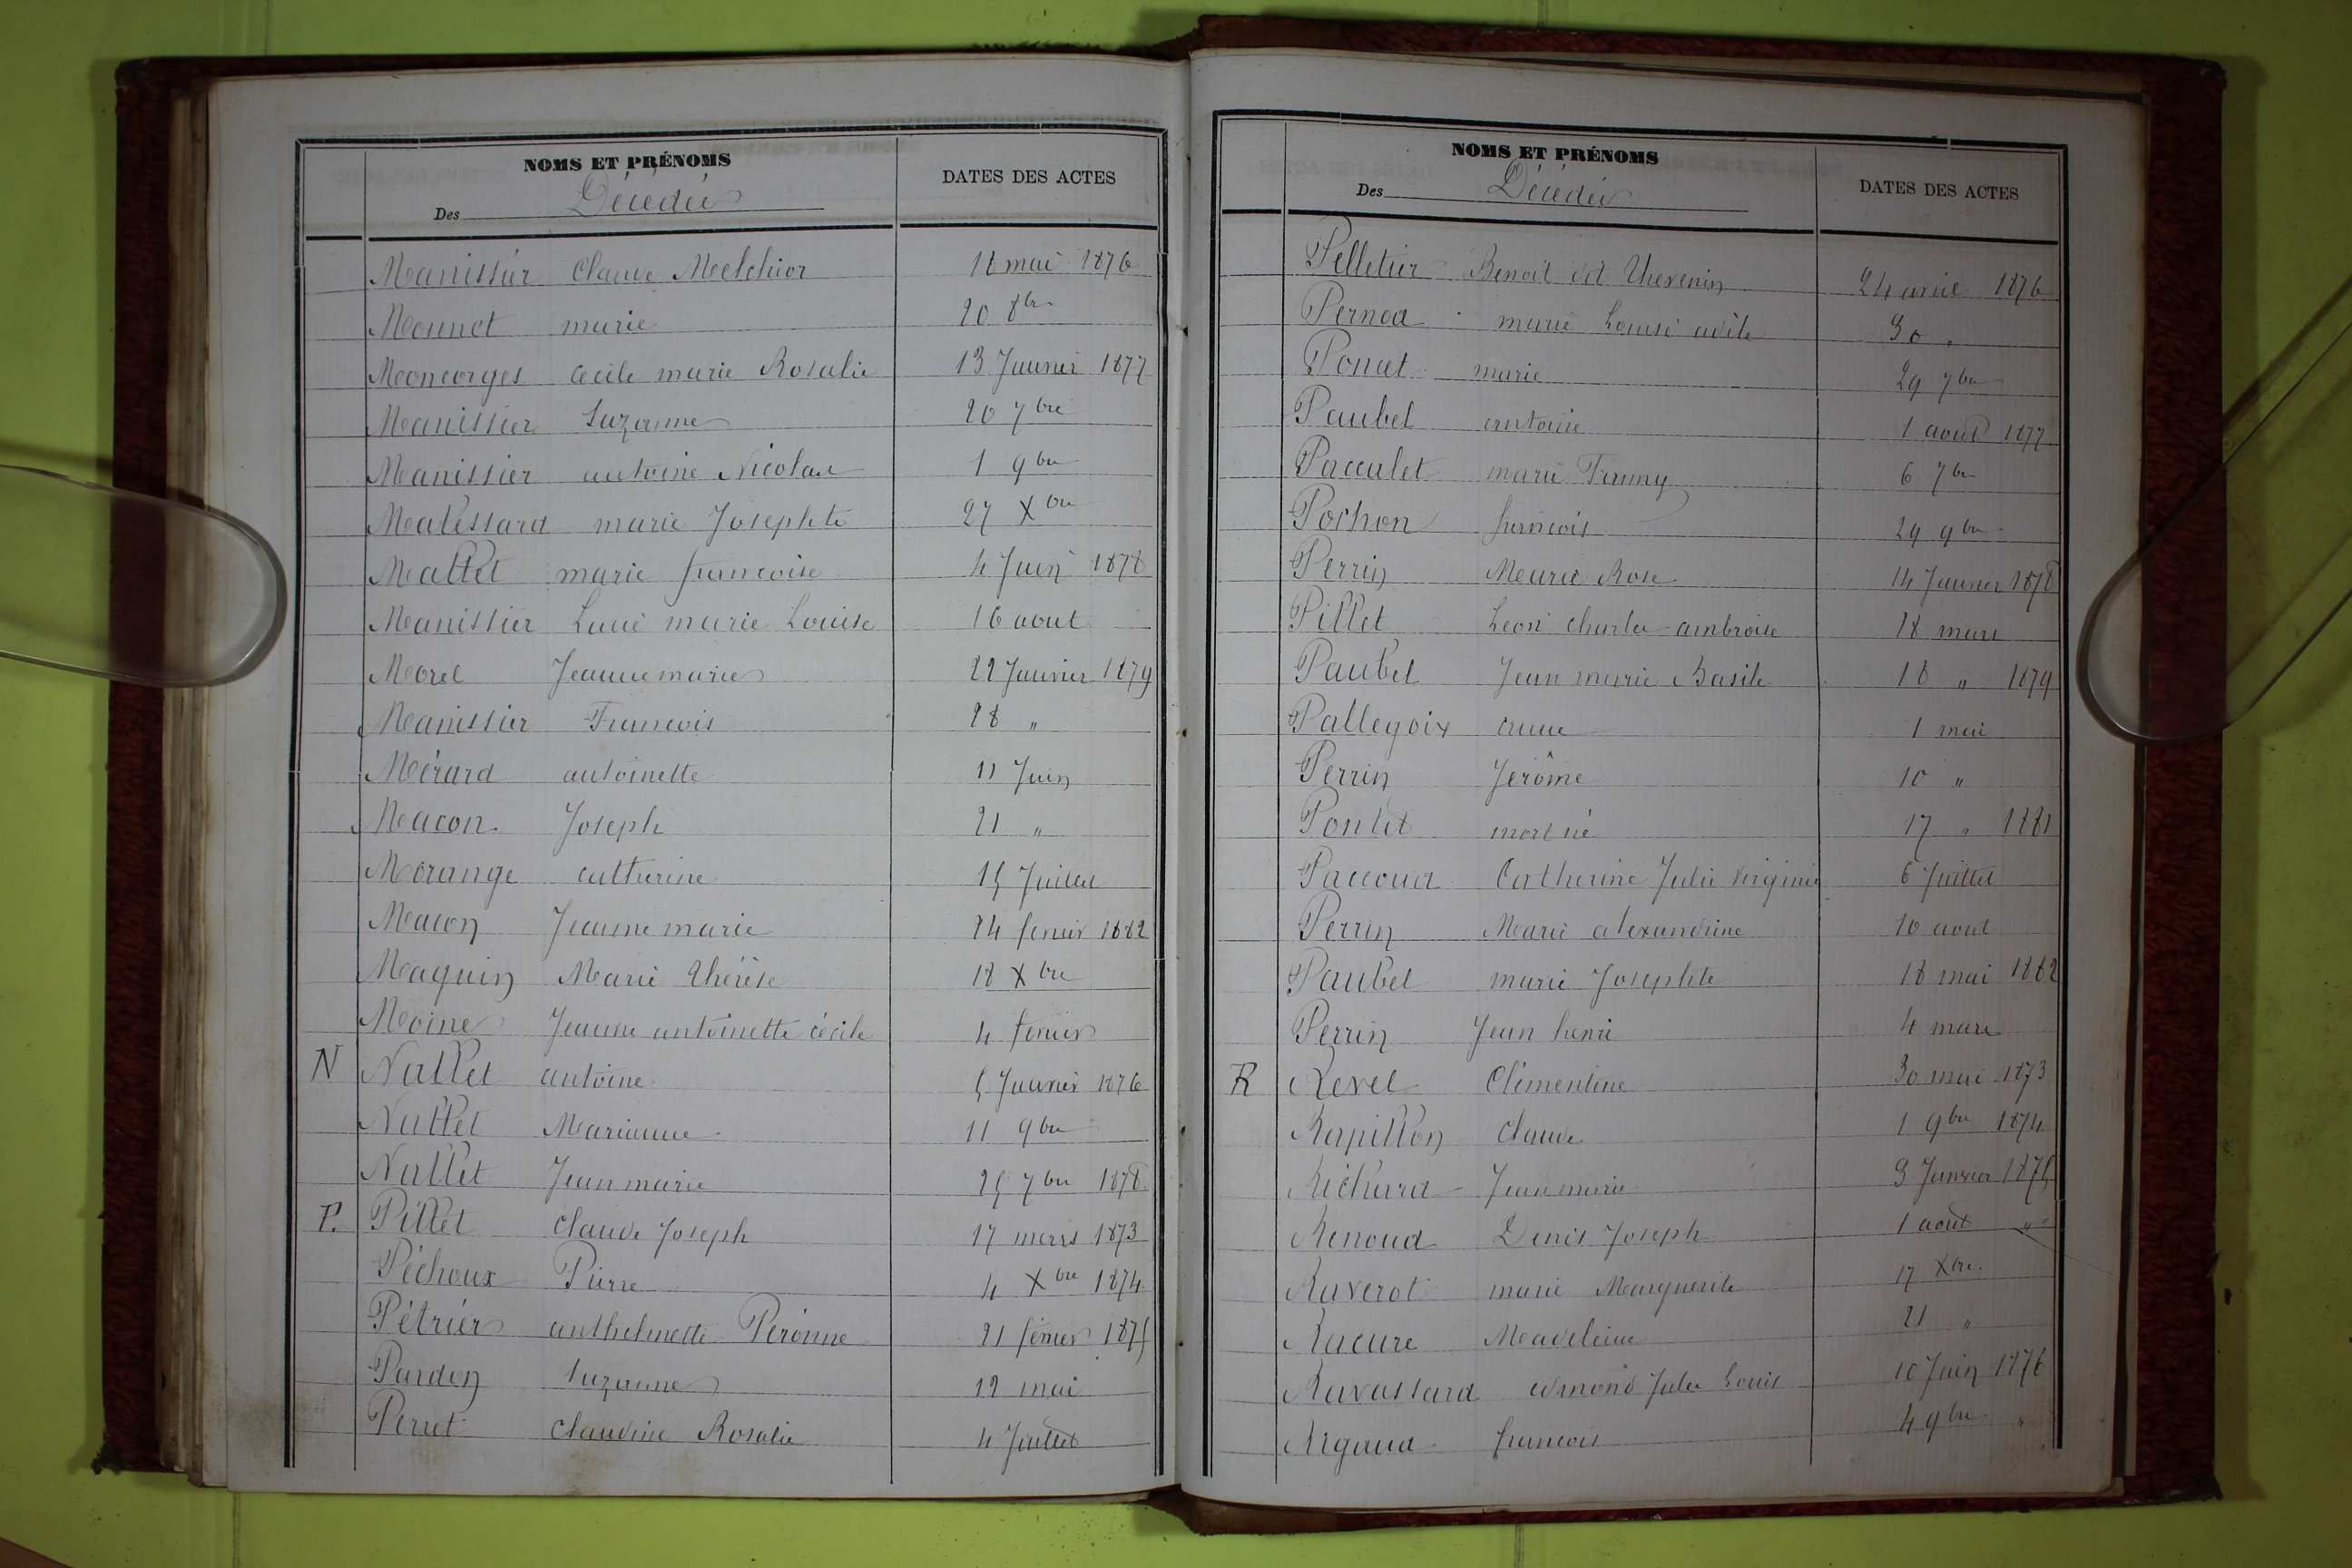 NOMS ET PRÉNOMS
Des Décédés
DATES DES ACTES
Manissier Claude Melchior 18 mai 1876
Mounet marie 20 8bre
Moncorges Cécile marie Rosalie 13 Janvier 1877
Manissier Suzanne 20 7bre
Manissier antoine Nicolas 1 9bre
Malessard marie Josephte 27 Xbre
Mallet marie francoise 4 Juin 1878
Manissier Lucie marie Louise 16 aout
Morel Jeanne marie 22 Janvier 1879
Manissier Francois 28 "
Mérard antoinette 11 Juin
Macon Joseph 21 "
Morange catherine 15 Juillet
Macon Jeanne marie 24 fevrier 1882
Maquin Marie Thérèse 18 Xbre
Moine Jeanne antoinette cécile 4 fevrier
N Nallet antoine 5 Janvier 1876
Nallet Marianne 11 9bre
Nallet Jean marie 25 7bre 1878
P. Pillet Claude Joseph 17 mars 1873
Péchoux Pierre 4 Xbre 1874
Pétrier anthelmette Péronne 21 février 1875
Pardon Suzanne 12 mai
Perret Claudine Rosalie 4 Juillet
NOMS ET PRÉNOMS
Des Décédés
DATES DES ACTES
Pelletier Benoit dit Thevenin 24 avril 1876
Pernod marie Louise adèle 30 "
Poncet marie 29 7bre
Paubel antoine 1 aout 1877
Paccalet marie Fanny 6 7bre
Pochon francois 29 9bre
Perrin Marie Rose 14 Janvier 1878
Pillet Leon charles ambroise 18 mars
Paubel Jean marie Basile 18 " 1879
Pallegoix anne 1 mai
Perrin Jérôme 10 "
Pontet mort né 17 " 1881
Paccoud Catherine Julie Virginie 6 Juillet
Perrin Marie alexandrine 10 aout
Paubel marie Josephte 18 mai 1882
Perrin Jean henri 4 mars
R Revel Clémentine 30 mai 1873
Rapillon Claude 1 9bre 1874
Richard Jean marie 3 Janvier 1875
Renoud Denis Joseph 1 août "
Raverot marie Marguerite 17 Xbre
Racure Madeleine 21 "
Ravassard edmond Jules Louis 10 Juin 1876
Rigaud francois 4 9bre "